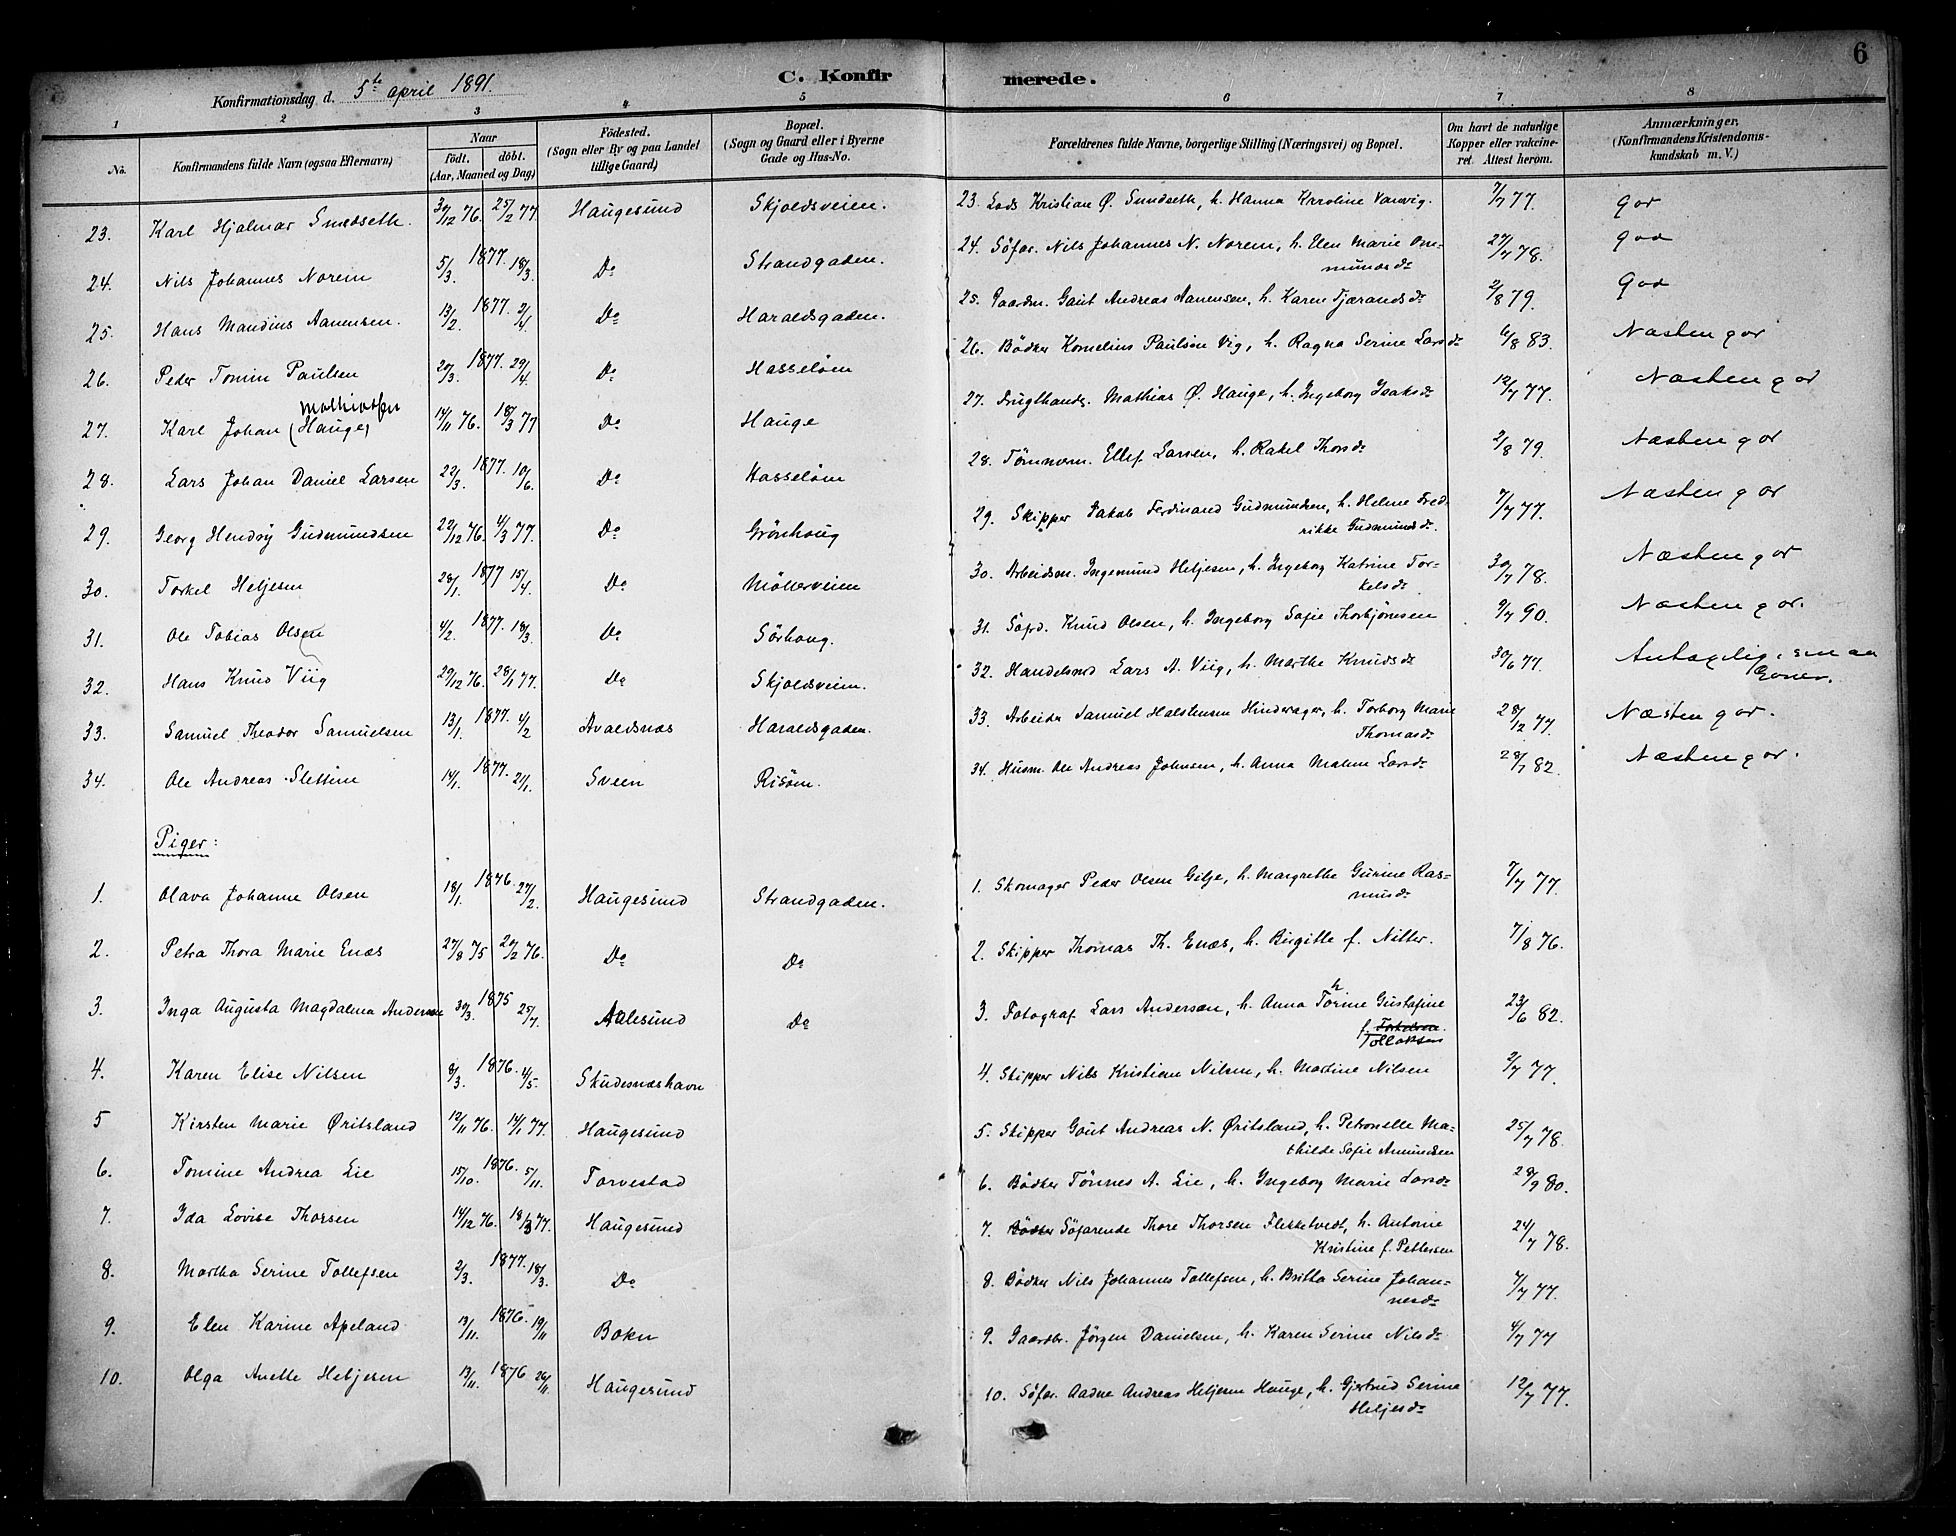 6
C. Konfirmerede.
Konfirmationsdag d. 5te april 1891.
1 2 3 4 5 6 7 8
No. Konfirmandens fulde Navn (ogsaa Efternavn) Naar født. døbt. (Aar, Maaned og Dag) Fødested. (Sogn eller By og paa Landet tillige Gaard) Bopæl. (Sogn og Gaard eller i Byerne Gade og Hus-No. Forældrenes fulde Navne, borgerlige Stilling (Næringsvei) og Bopæl. Om havt de naturlige Kopper eller vakcineret. Attest herom. Anmærkninger. (Konfirmandens Kristendomskundskab m. V.)
23. Karl Hjalmar Smedseth. 30/12 76. 25/2 77. Haugesund Skjoldsveien. 23. Lods Kristian Ø. Smedseth, h. Hanna Karoline Vanvig. 7/7 77. god
24. Nils Johannes Norem 5/3. 1877. 18/3. Do Strandgaden. 24. Söfar. Nils Johannes N. Norem, h. Elen Marie Ommundsdr 27/7 78. god
25. Hans Mandius Aanensen. 13/2. 1877. 2/4. Do Haraldsgaden. 25. Gaardm. Gaut Andreas Aanensen, h. Karen Tjærandsdr 2/8 79. God
26. Peder Tomin Paulsen 20/3. 1877. 29/4. Do Hasseløen 26. Bödker Kornelius Paulsen Vig, h. Ragna Serine Larsdr 6/8 83. Næsten god
27. Karl Johan Mathiassen (Hauge) 14/11 76. 18/3 77 Do Hauge 27. Brugthandl. Mathias Ø. Hauge, h. Ingeborg Isaksdr 12/7 77. Næsten god
28. Lars Johan Daniel Larsen 22/3. 1877. 10/6. Do Hasseløen 28. Tömmerm. Ellef Larsen, h. Rakel Thorsdr 2/8 79. Næsten god
29. Georg Hendry Gudmundsen 22/12 76. 4/3 77. Do Grönhaug 29. Skipper Jakob Ferdinand Gudmundsen, h. Helene Fredrikke Gudmundsdr. 7/7 77. Næsten god
30. Torkel Heljesen 28/1. 1877 15/4. Do Möllerveien 30. Arbeidsm. Ingemund Heljesen, h. Ingeborg Katrine Torkelsdr 30/7 78. Næsten god
31. Ole Tobias Olsen 4/2. 1877. 18/3. Do Sörhaug. 31. Söfd. Knud Olsen, h. Ingeborg Sofie Thorbjörnsen 9/7 90. Næsten god.
32. Hans Knud Viig 29/12 76. 28/1 77. Do Skjoldsveien. 32. Handelsmd Lars A. Viig, h. Marthe Knudsdr 30/6 77. Antagelig, smaa Evner.
33. Samuel Theodor Samuelsen 13/1. 1877. 4/2 Avaldsnæs Haraldsgaden. 33. Arbeider Samuel Halstensen Hinderager, h. Torborg Marie Thomasdr 28/12 77. Næsten god.
34. Ole Andreas Slettene 14/1. 1877. 21/1. Sveen Risöen. 34. Husm. Ole Andreas Johnsen, h. Anna Malene Larsdr 28/7 82. Næsten god.
Piger:
1. Olava Johanne Olsen 18/1. 1876. 27/2. Haugesund Strandgaden. 1. Skomager Peder Olsen Gilje, h. Margrethe Gurine Rasmusdr 7/7 77.
2. Petra Thora Marie Enæs 27/8 75 20/2 76. Do Do 2. Skipper Thomas Th. Enæs, h. Birgitte f. Nitter. 7/8 76.
3. Inga Augusta Magdalena Andersen 30/3. 1875 25/7. Aalesund Do 3. Fotograf Lars Andersen, h. Anna Thorine Gustafine f. Torkelsen. Tollaksen 23/6 82.
4. Karen Elise Nilsen 8/3. 1876. 4/5. Skudesnæshavn 4. Skipper Nils Kristian Nilsen, h. Martine Nilsen 2/7 77.
5 Kirsten Marie Øritsland 12/11 76. 14/1 77. Haugesund 5. Skipper Gaut Andreas N. Øritsland, h. Petronelle Mathilde Sofie Amundsen 25/7 78.
6. Tomine Andrea Lie 15/10. 1876. 5/11. Torvestad 6. Bödker Tönnes A. Lie, h. Ingeborg Marie Larsdr 28/9 80.
7. Ida Lovise Thorsen 14/12 76. 18/3 77. Haugesund 7. Bödker Söfarende Thore Thorsen Flekketvedt, h. Antonie Kristine f. Pettersen 24/7 78.
8. Martha Serine Tollefsen 2/3. 1877. 18/3. Do 8. Bödker Nils Johannes Tollefsen, h. Britta Serine Johannesdr 7/7 77.
9. Elen Karine Apeland 13/11. 1876. 19/11 Bokn 9. Gaardbr. Jörgen Danielsen, h. Karen Serine Nilsdr 4/7 77
10. Olga Anette Heljesen 13/11. 1876 26/11. Haugesund 10. Söfar. Aadne Andreas Heljesen Hauge, h. Gjertrud Serine Heljesdr 12/7 77.